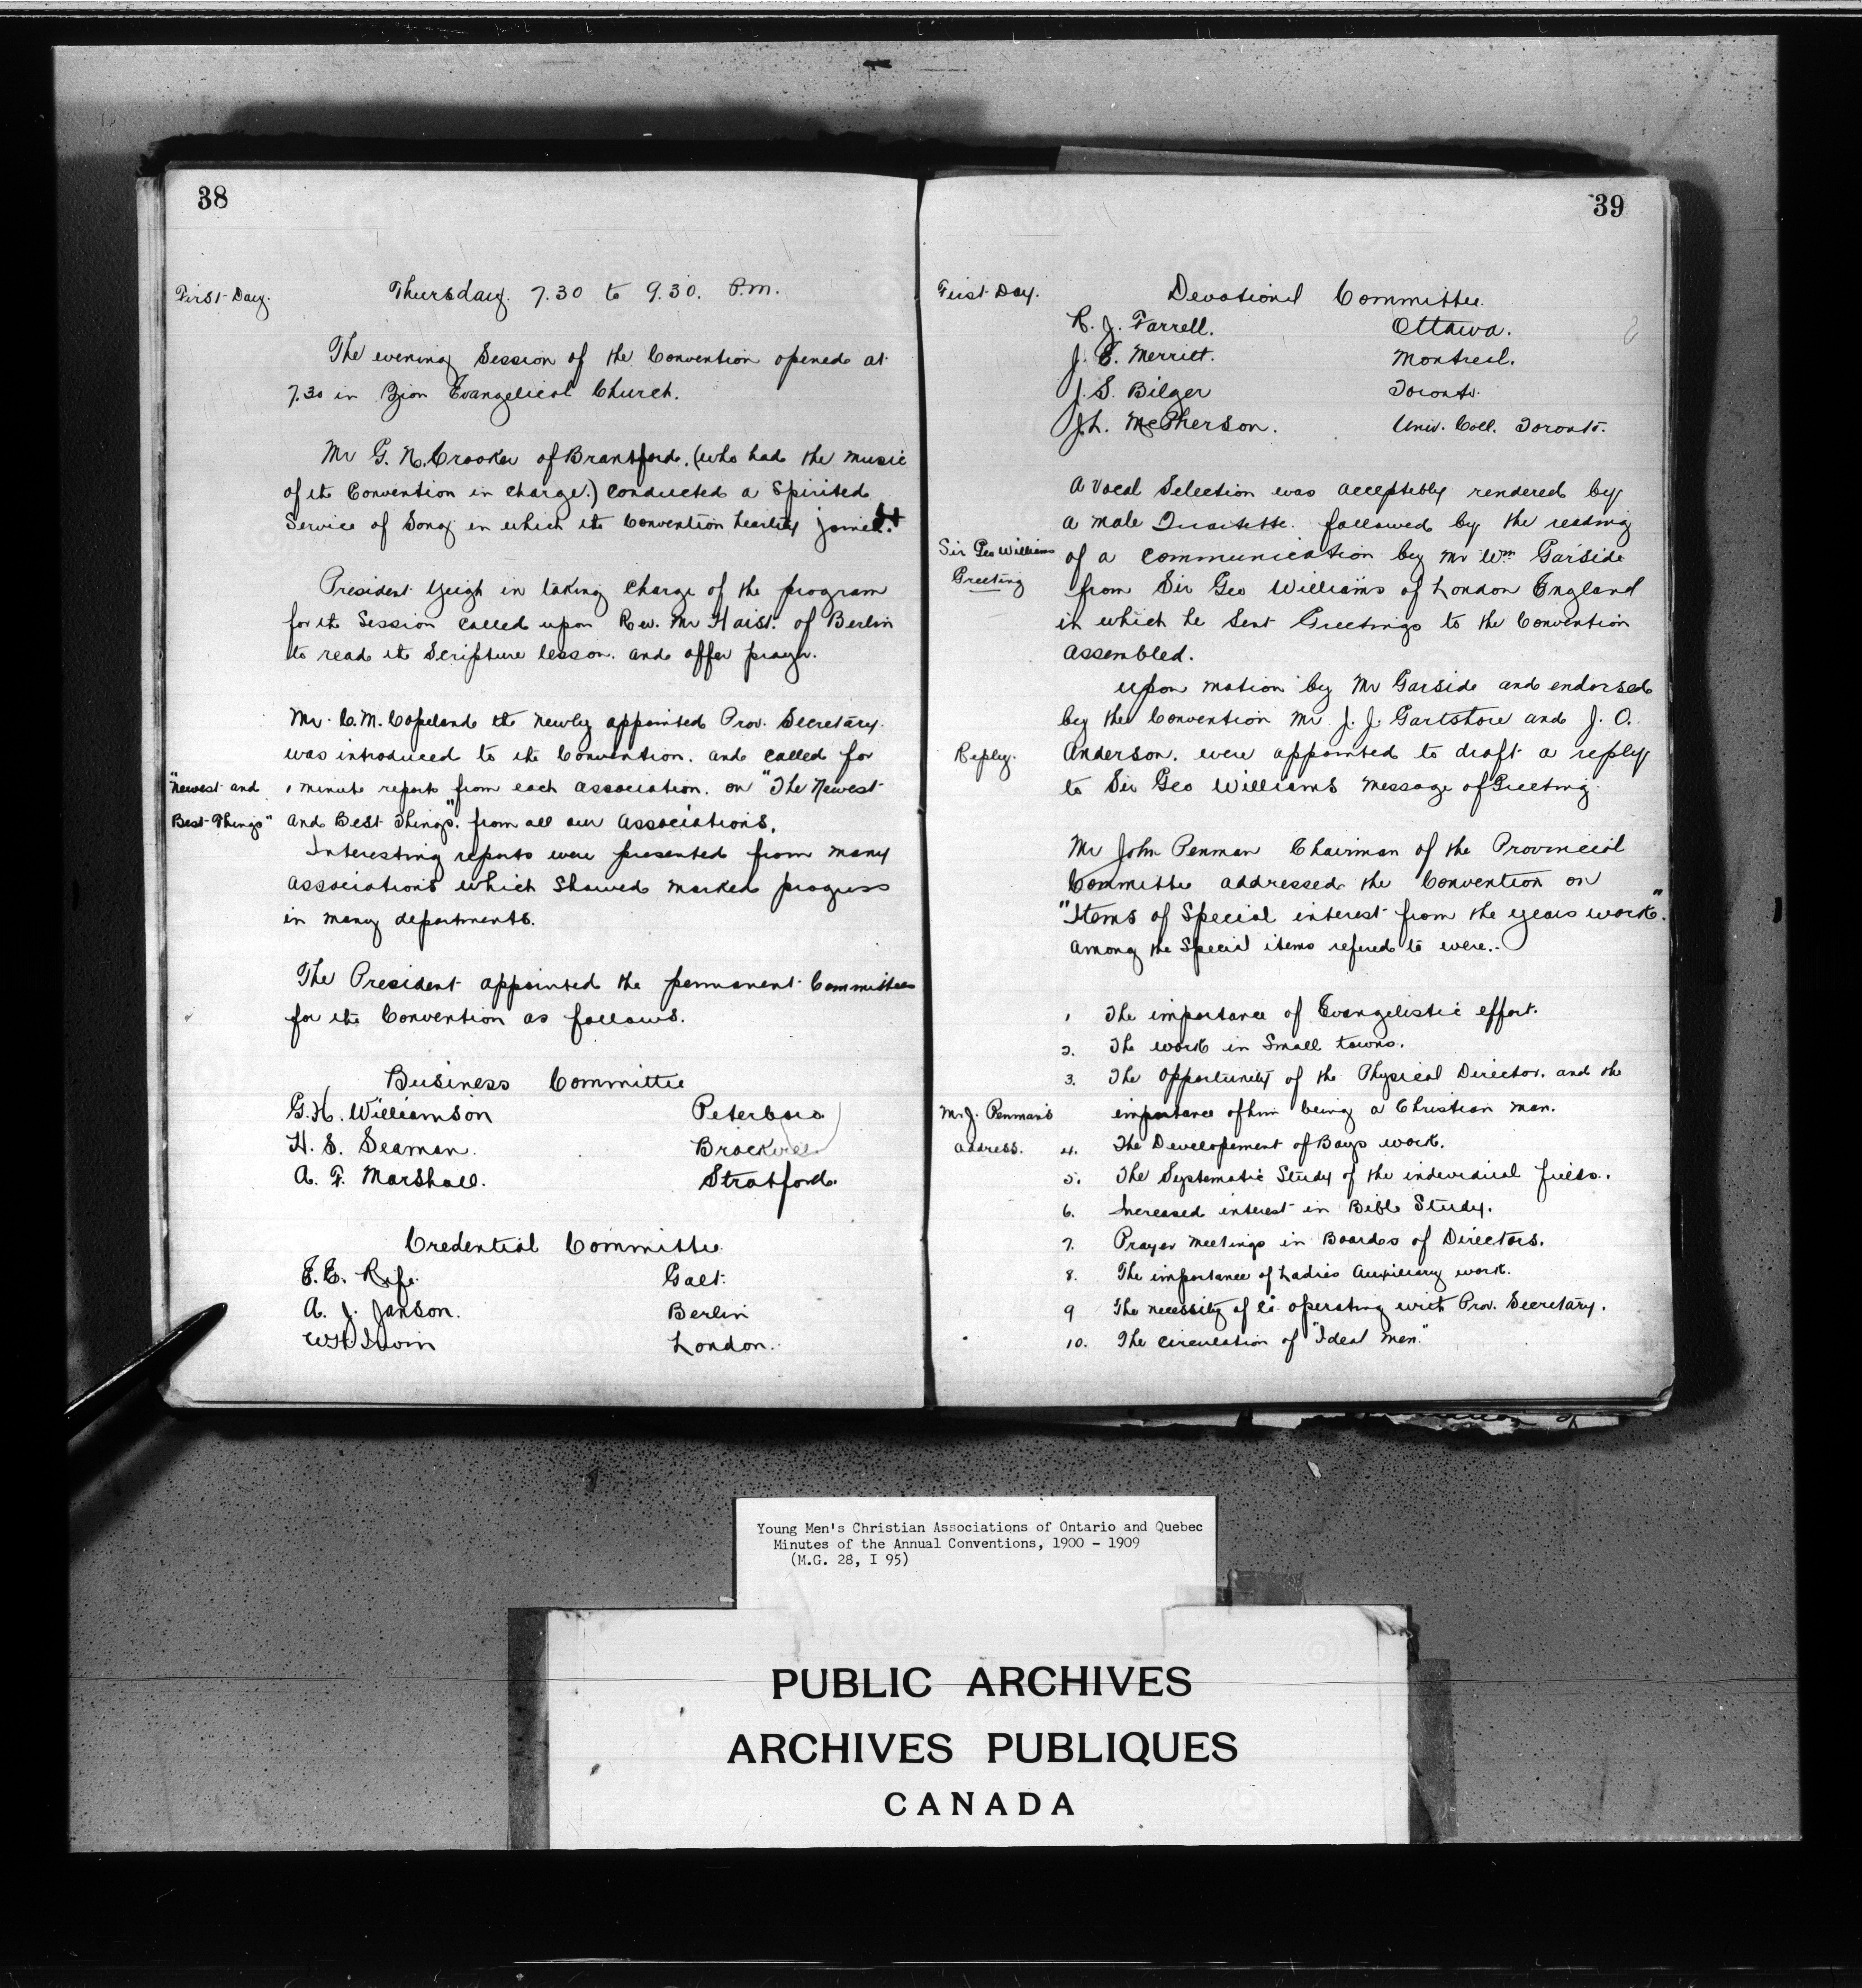 38
First Day.
Thursday. 7.30 to 9.30. P.m.
The evening Session of the Convention opened at
7.30 in Zion Evangelical Church.
Mr G. N. Crooker of Brantford. (who had the music
of the Convention in charge.) conducted a Spirited
Service of Song in which the Convention heartily joined.
President Yeigh in taking charge of the program
for the Session called upon Rev. Mr Haist. of Berlin
to read the Scripture lesson. and offer prayer.
Mr. C. M. Copeland the newly appointed Prov. Secretary.
was introduced to the Convention. and called for
"Newest and
1 minute reports from each Association. on "The Newest
Best Things"
and Best Things". from all our Associations.
Interesting reports were presented from many
Associations which Showed marked progress
in many departments.
The President appointed the permanent Committees
for the Convention as follows.
Business Committee
G. H. Williamson Peterboro
H. S. Seaman. Brockville
A. F. Marshall. Stratford.
Credential Committee
E. E. Rife. Galt.
A. J. Janson. Berlin
W. H. Irwin London.
39
First Day.
Devotional Committee.
R. J. Farrell. Ottawa.
J. E. Merritt. Montreal.
J. S. Bilger Toronto.
J. L. McPherson. Univ. Coll. Toronto.
A Vocal Selection was acceptably rendered by
a male Quartette. followed by the reading
Sir Geo Williams
Greeting
of a communication by Mr Wm Garside
from Sir Geo Williams of London England
in which he Sent Greetings to the Convention
assembled.
upon motion by Mr Garside and endorsed
by the Convention Mr J. J. Gartshore and J. O.
Reply.
Anderson. were appointed to draft a reply
to Sir Geo Williams message of Greeting.
Mr John Penman Chairman of the Provincial
Committee addressed the Convention on
"Items of Special interest from the years work."
among the Special items refered to were.-
1 The importance of Evangelistic effort.
2. The work in Small towns.
3. The opportunity of the Physical Director. and the
importance of him being a Christian man.
Mr J. Penman's
address.
4. The Developement of Boys work.
5. The Systematic Study of the individual fields.
6. Increased interest in Bible Study.
7. Prayer meetings in Boards of Directors.
8. The importance of Ladies Auxiliary work.
9 The necessity of co operating with Prov. Secretary.
10. The circulation of "Ideal Men."
Young Men's Christian Associations of Ontario and Quebec
Minutes of the Annual Conventions, 1900 - 1909
(M.G. 28, I 95)
PUBLIC ARCHIVES
ARCHIVES PUBLIQUES
CANADA